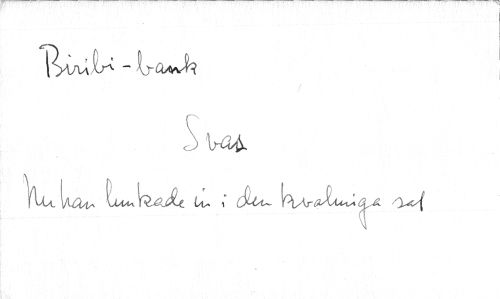 Biribi-bank
Svas
Nu han lunkade in i den kvalmiga sal